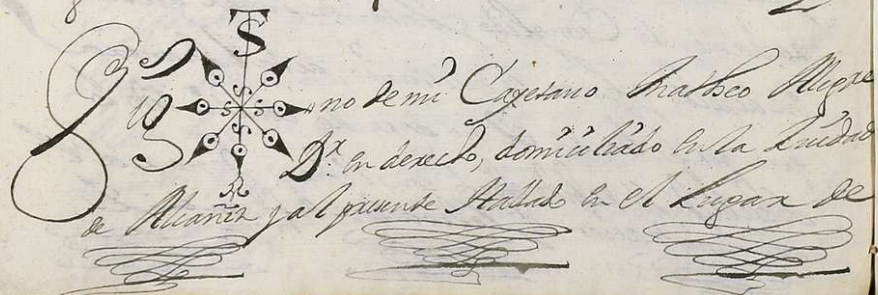 Sig no de mi Cayetano Matheo Alegre
Dr. en derecho, domiciliado en la Ciudad
de Alcañiz y al presente Hallado en el Lugar de